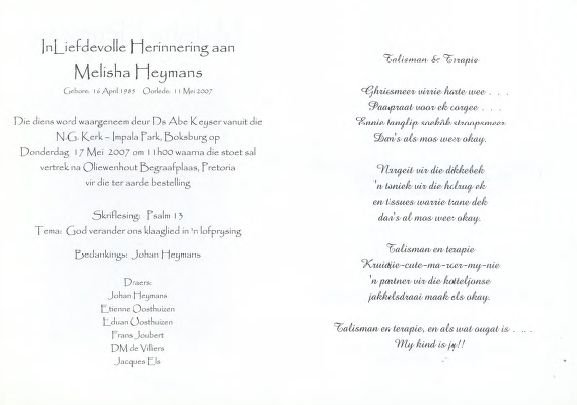 In Liefdevolle Herinnering aan
Melisha Heymans
Gebore: 16 April 1985 Oorlede: 11 Mei 2007
Die diens word waargeneem deur Ds Abe Keyser vanuit die
N.G. Kerk – Impala Park, Boksburg op
Donderdag 17 Mei 2007 om 11h00 waarna die stoet sal
vertrek na Oliewenhout Begraafplaas, Pretoria
vir die ter aarde bestelling
Skriflesing: Psalm 13
Tema: God verander ons klaaglied in 'n lofprysing
Bedankings: Johan Heymans
Draers:
Johan Heymans
Etienne Oosthuizen
Eduan Oosthuizen
Frans Joubert
DM de Villiers
Jacques Els
Talisman & Terapie
Ghriesmeer virrie harte wee . . .
voor ek
Ennie
Dan's als mos weer okay.
vir die dikkebek
'n toniek vir die
en tissues warrie trane dek
dan's al mos weer okay.
Talisman en terapie
'n partner vir die
jakkelsdraai maak als okay.
Talisman en terapie, en als wat ougat is .....
My kind is jy!!